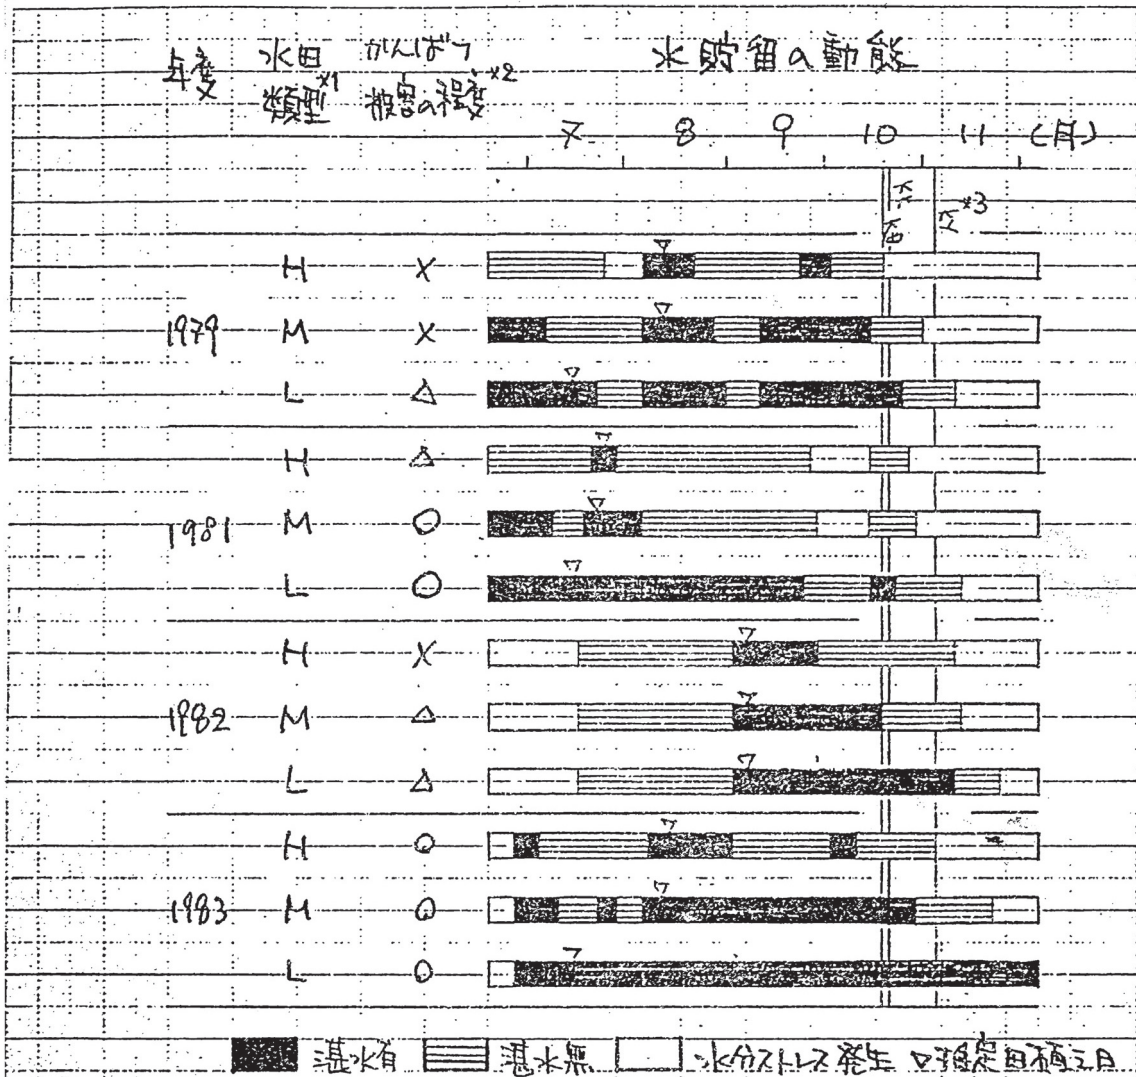 年度 水田類型*1 がんばつ被害の程度*2 水貯留の動態
7 8 9 10 11 (月)
*3
H X
1979 M X
L △
H △
1981 M ○
L ○
H X
1982 M △
L △
H ○
1983 M ○
L ○
湛水有 湛水無 水分ストレス発生 ▽推定田植え日